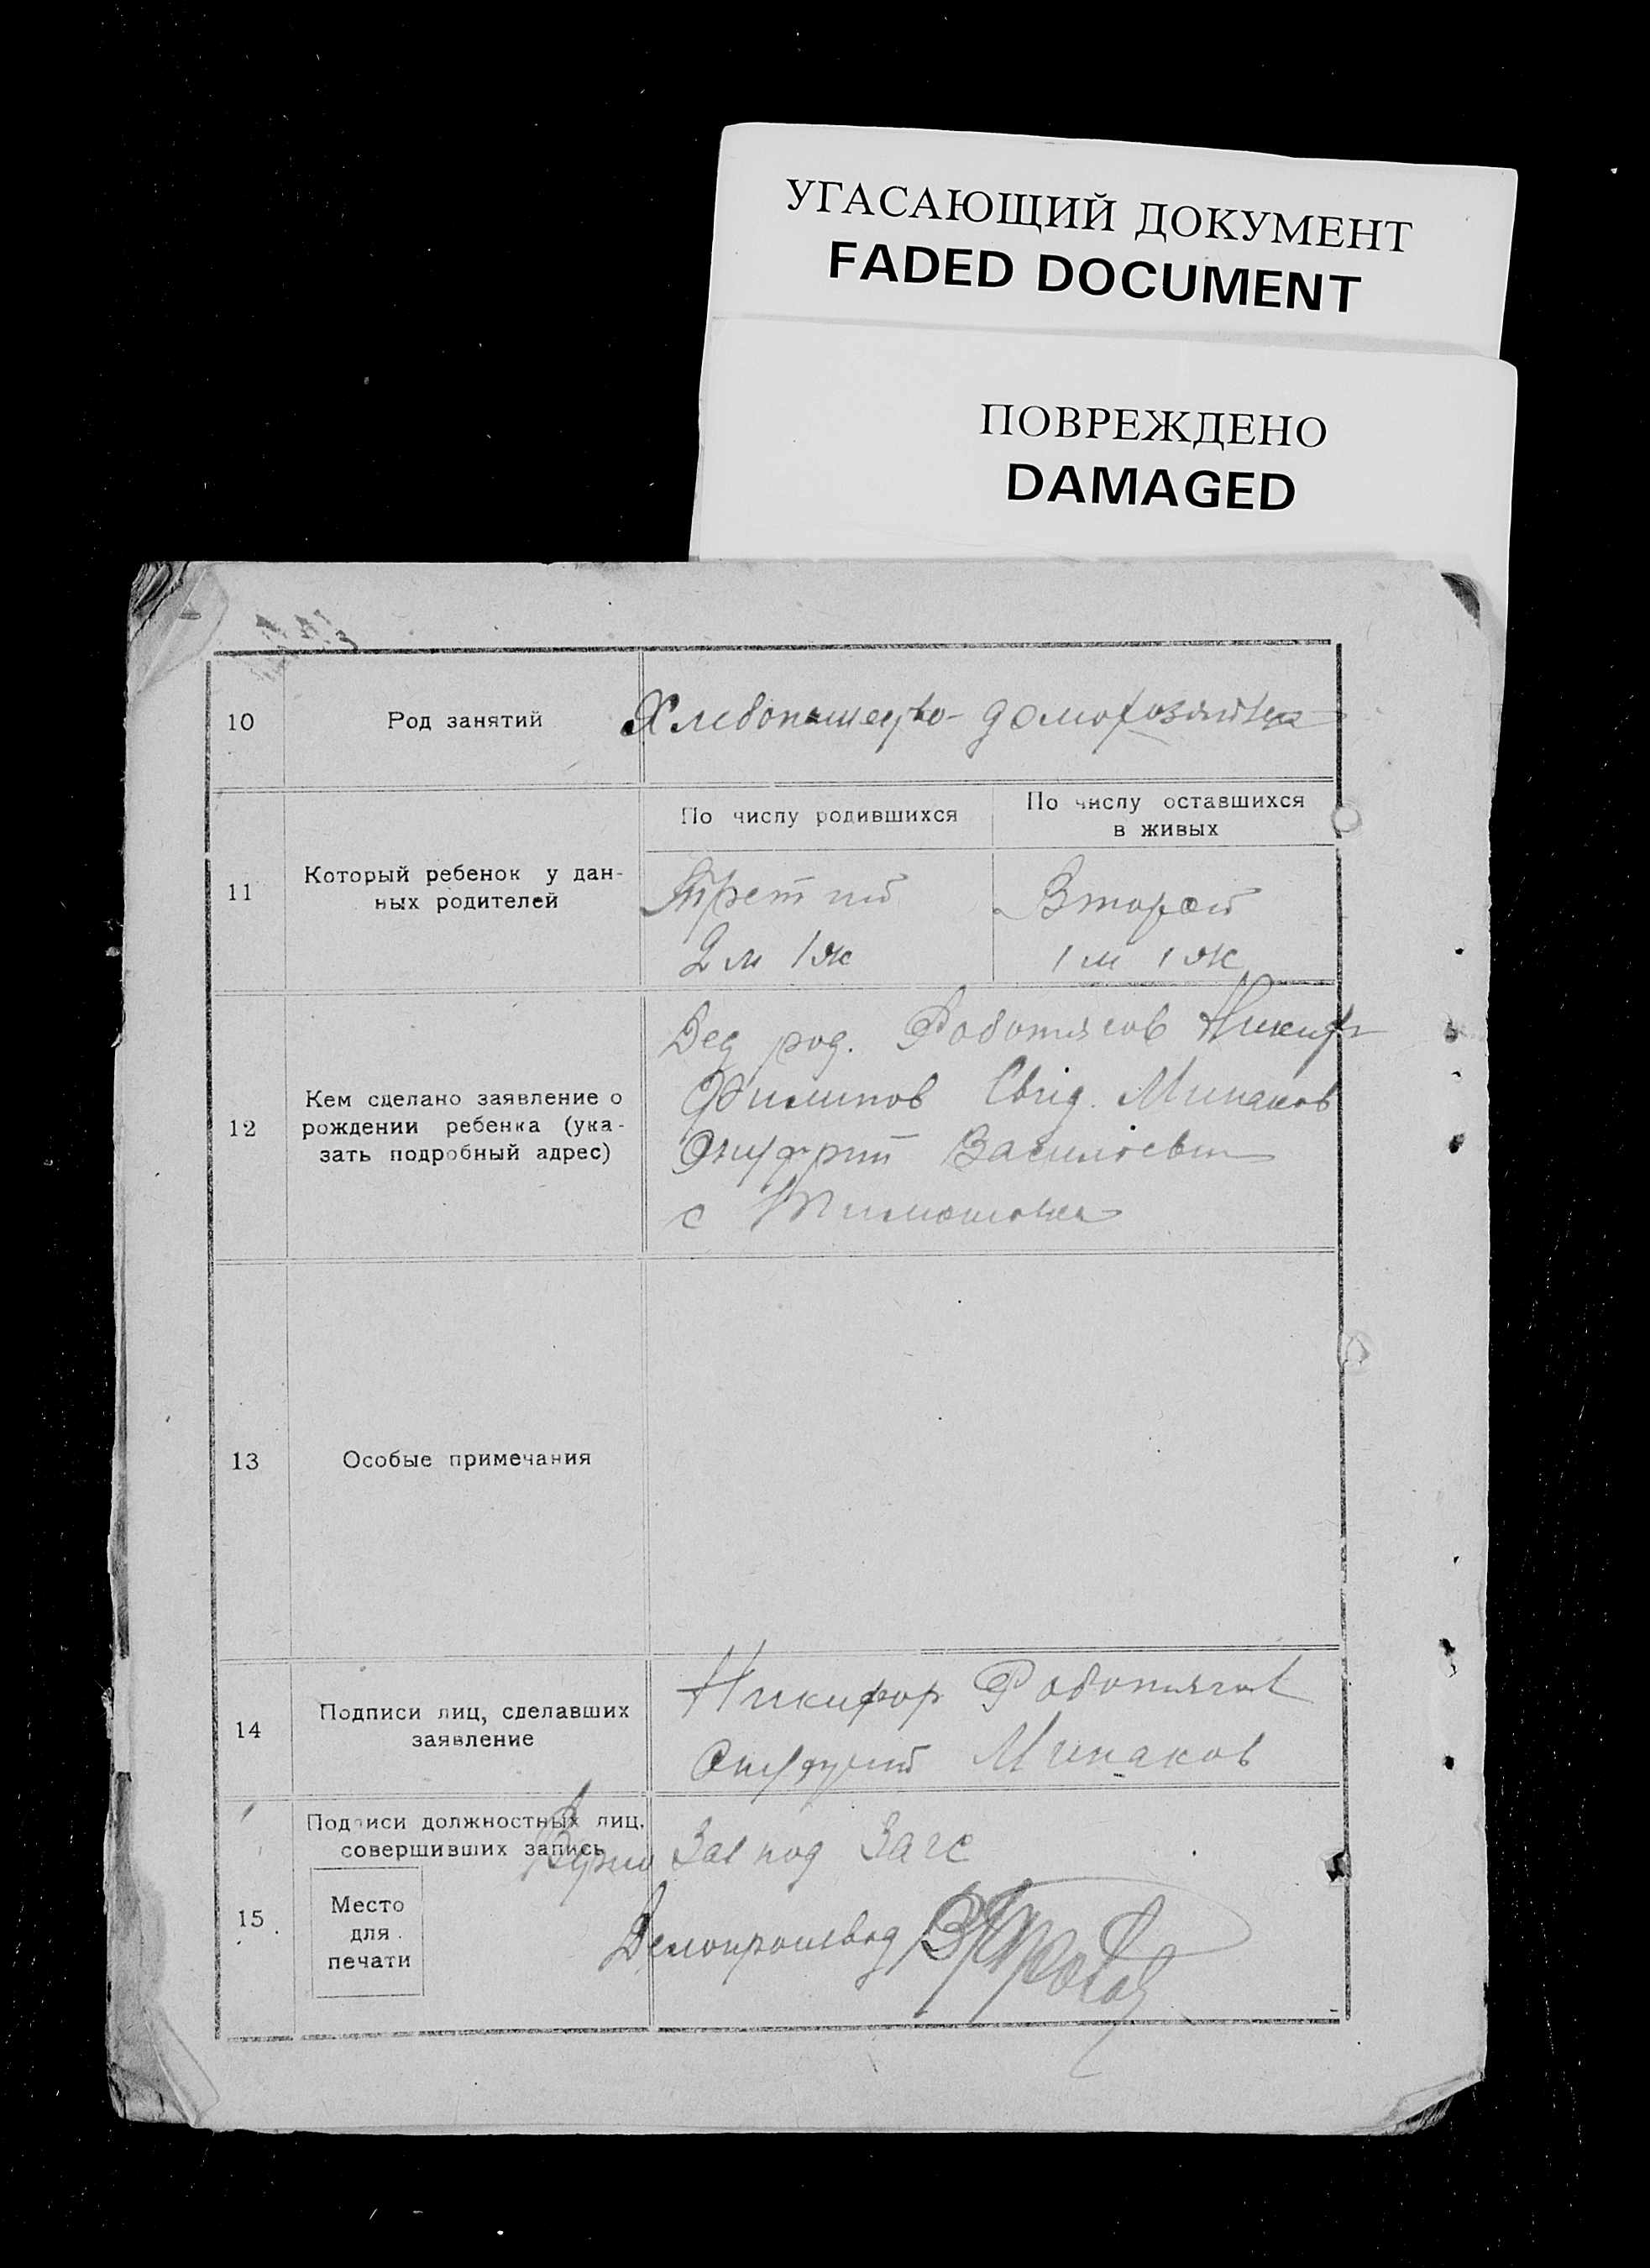 УГАСАЮЩИЙ ДОКУМЕНТ
FADED DOCUMENT
ПОВРЕЖДЕНО
DAMAGED
10
Род занятий
Хлебопашество - домохозяйка
11
Который ребенок у дан-
ных родителей
По числу родившихся
Третий
2 м 1 ж
По числу оставшихся
в живых
Второй
1 м 1 ж
12
Кем сделано заявление о
рождении ребенка (ука-
зать подробный адрес)
Дед род. Работягов Никифор
Филипов Свид. Минаков
Онуфрий Василиевич
с Тимошовка
13
Особые примечания
14
Подписи лиц, сделавших
заявление
Никифор Работягов
Онуфрий Минаков
15
Подписи должностных лиц,
совершивших запись
Место
для
печати
Верно Зав под Загс
Делопроизвод